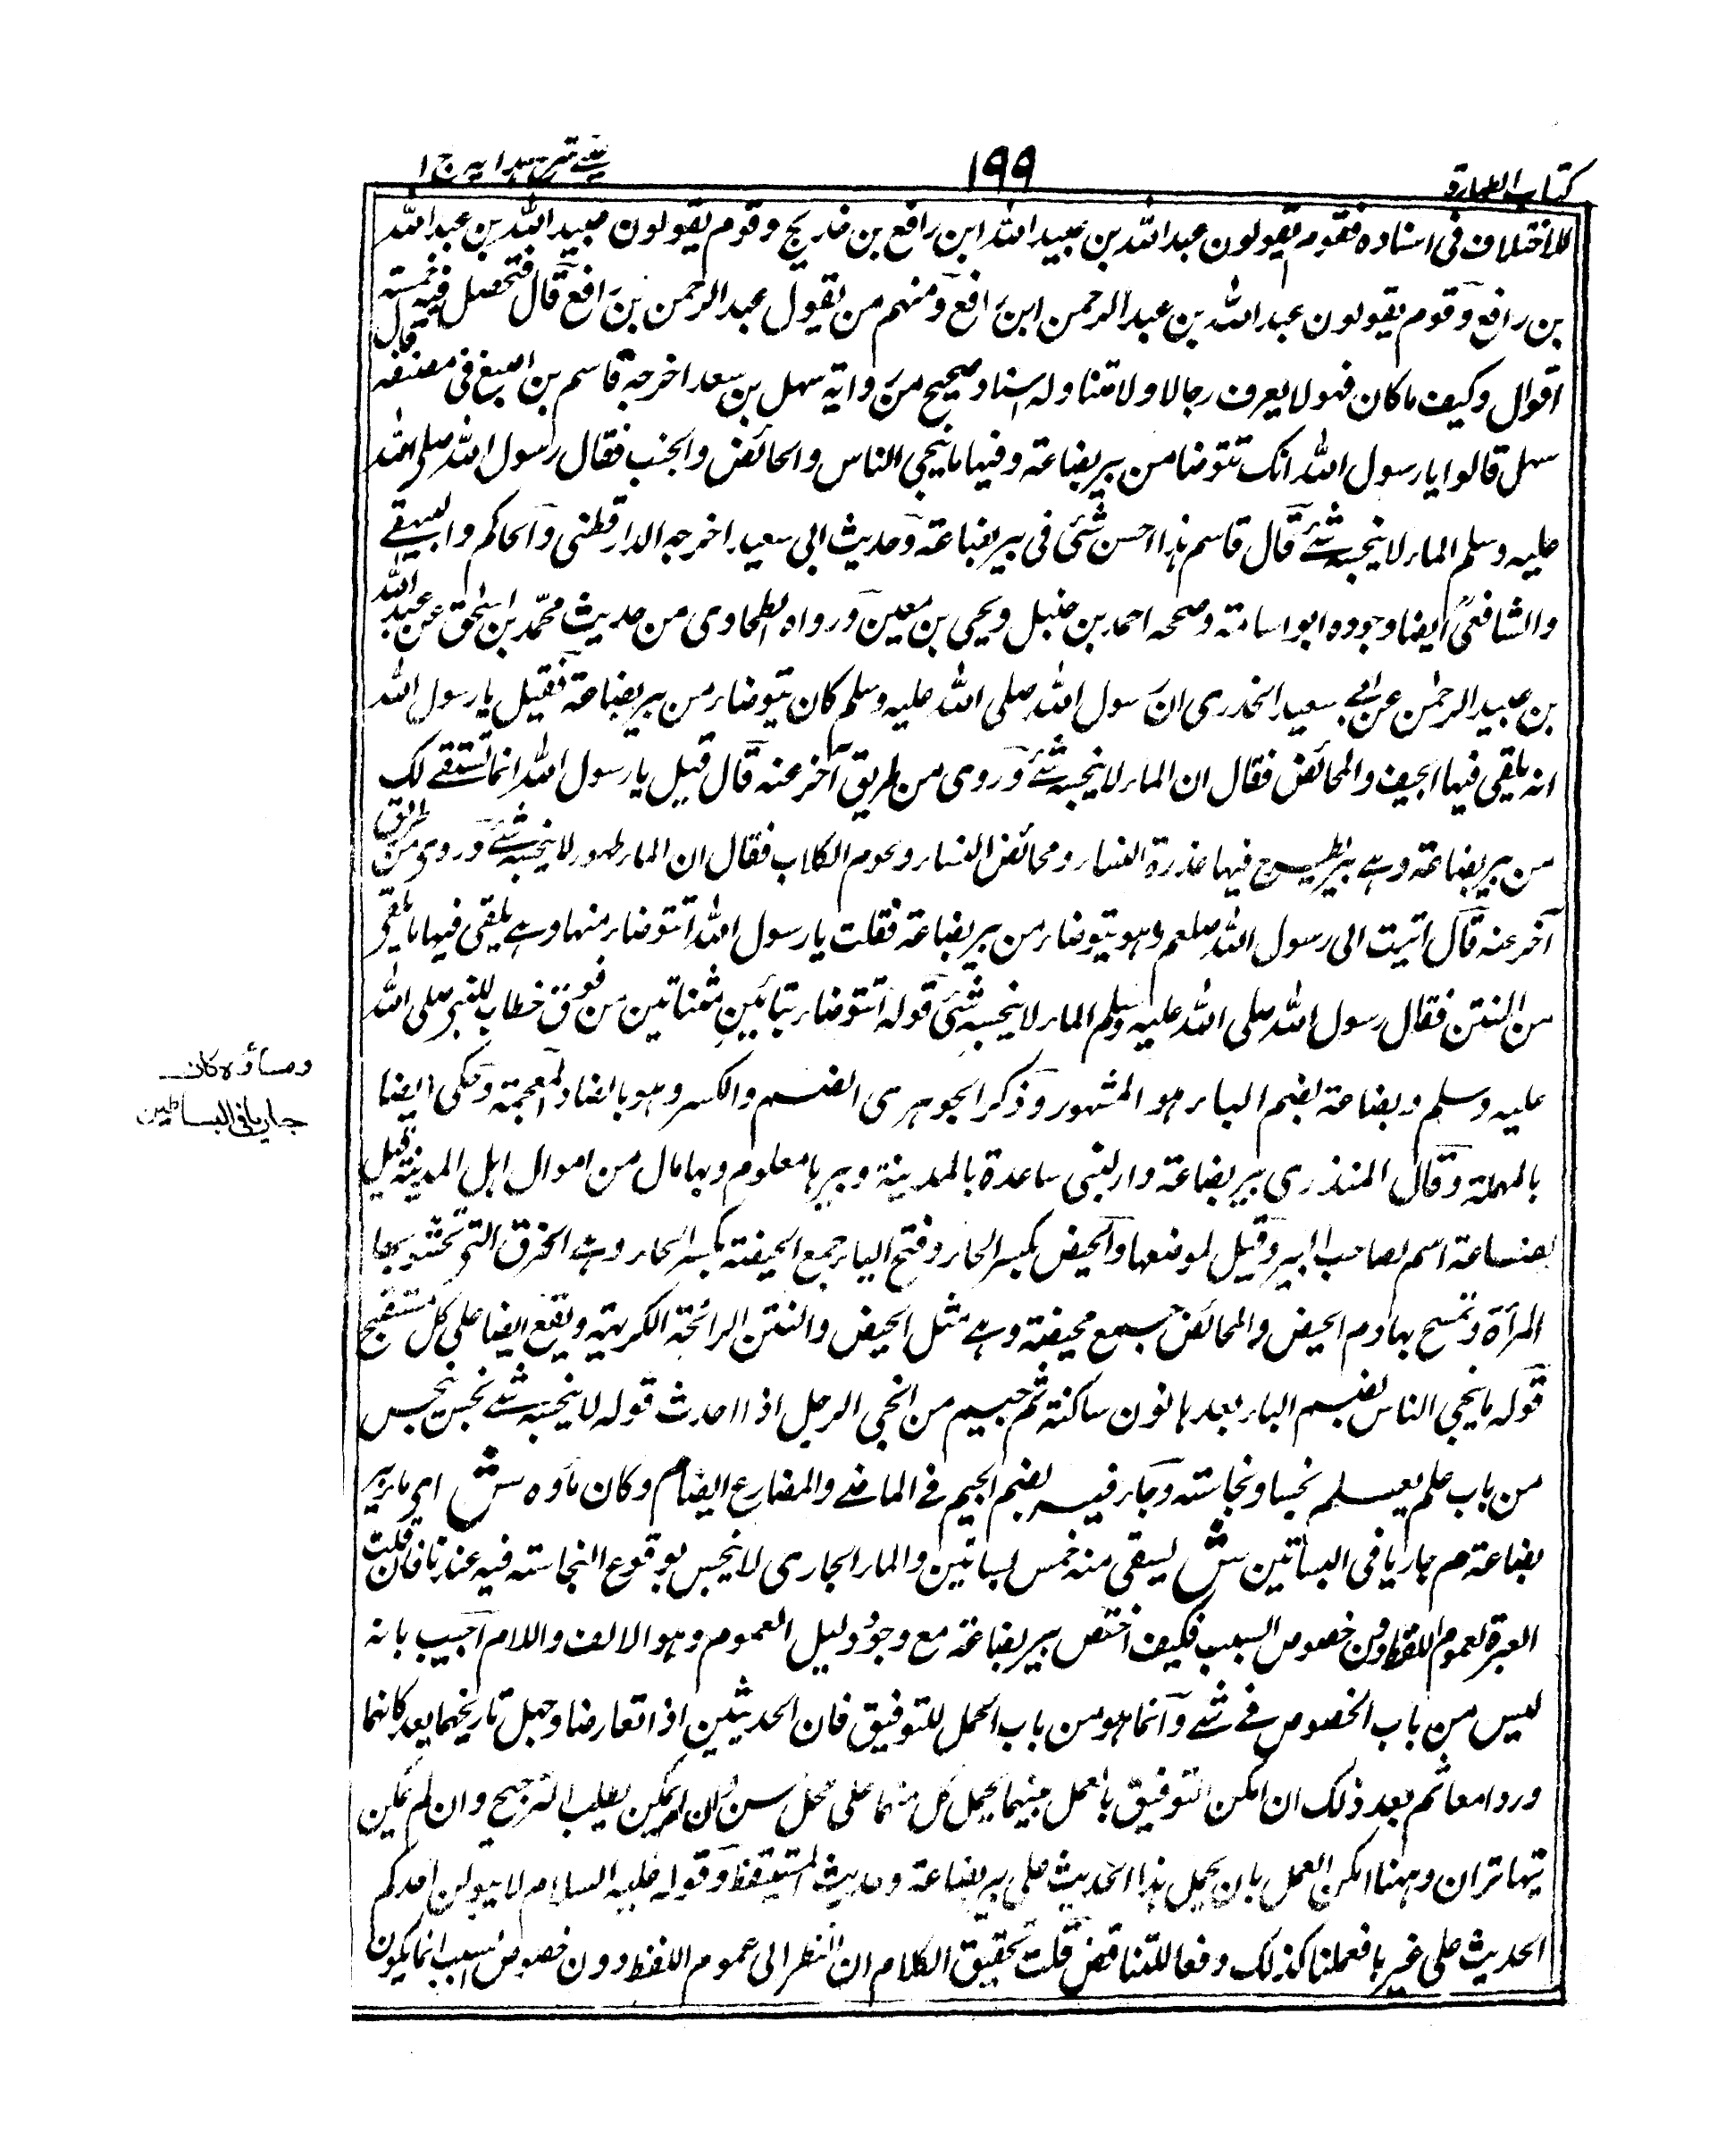 كتاب الطهارة
١٩٩
عيني شرح هدايه ج ١
للاختلاف فى اسناده فقوم يقولون عبد الله بن عبيد الله ابن رافع بن خديج وقوم يقولون عبيد الله بن عبد الله
بن رافع وقوم يقولون عبد الله بن عبد الرحمن ابن رافع ومنهم من يقول عبد الرحمن بن رافع قال فتحصل فيه خمسة
اقوال وكيف ما كان فهو لا يعرف رجالا ولا متنا وله اسناد صحيح من رواية سهل بن سعد اخرجه قاسم بن اصبغ فى مصنفه قال
سهل قالوا يا رسول الله انك تتوضا من بير بضاعة وفيها ما ينجي الناس والحائض والجنب فقال رسول الله صلى الله
عليه وسلم الماء لا ينجسه شئ قال قاسم هذا احسن شئى فى بير بضاعة وحديث ابى سعيد اخرجه الدارقطنى والحاكم والبيهقے
والشافعى ايضا وجوده ابو اسامة وصححه احمد بن حنبل ويحى بن معين ورواه الطحاوى من حديث محمّد بن اسحق عن عبد الله
بن عبيد الرحمٰن عن ابے سعيد الخدرى ان رسول الله صلى الله عليه وسلم كان يتوضاء من بير بضاعة فقيل يا رسول الله
انه يلقى فيها الجيف والمحائض فقال ان الماء لا ينجسه شئ وروى من طريق آخر عنه قال قيل يا رسول الله انما تستقے لك
من بير بضاعة وہے بير يطرح فيها عذرة النساء ومحائض النساء ولحوم الكلاب فقال ان الماء طهور لا ينجسه شئ وروى من طريق
آخر عنه قال اتيت الى رسول الله صلعم وهو يتوضاء من بير بضاعة فقلت يا رسول الله اتتوضاء منها وہے يلقى فيها ما يلقى
من النتن فقال رسول الله صلى الله عليه وسلم الماء لا ينجسه شئى قوله اتتوضاء بتائين مثناتين من فوق خطاب للنبى صلى الله
عليه وسلم وبضاعة بضم الباء هو المشهور وذكر الجوهرى الضم والكسر وهو بالضاد المعجمة وحكى ايضا
بالمهملة وقال المنذرى بير بضاعة دار لبنى ساعدة بالمدينة وبيرها معلوم وبها مال من اموال اهل المدينة قيل
بضاعة اسم لصاحب البير وقيل لموضعها والحيض بكسر الحاء وفتح الياء جمع الحيضة بكسر الحاء وہے الخرق التى تحشو بها
المرأة وتمسح بها دم الحيض والمحائض جمع محيضة وہے مثل الحيض والنتن الرائحة الكريهة ويقع ايضا على كل مستقبح
قوله ما ينجي الناس بضم الياء بعدها نون ساكنة ثم جيم من انجى الرجل اذا احدث قوله لا ينجسه شے نجس ينجس
من باب علم يعلم نجسا ونجاسته وجاء فيه بضم الجيم فے الماضے والمضارع ايضا م وكان ماؤه ش اى ماء بير
بضاعة م جاريا فى البساتين ش يسقى منه خمس بساتين والماء الجارى لا ينجس بوقوع النجاسته فيه عندنا فان قلت
العبرة لعموم اللفظ دون خصوص السبب فكيف اختص ببير بضاعة مع وجود دليل العموم وهو الالف واللام اجيب بانه
ليس من باب الخصوص فے شے وانما هو من باب الحمل للتوفيق فان الحديثين اذا تعارضا وجهل تاريخهما يعد كانهما
وردا معا ثم بعد ذلك ان امكن التوفيق بالعمل بينهما يحمل كل منهما على محمل حسن وان لم يمكن يطلب الترجيح وان لم يمكن
تهاتران وههنا امكن العمل بان يحمل هذا الحديث على بير بضاعة وحديث المستيقظ وقوله عليه السلام لا يبولن احدكم
الحديث على غيرها فعملنا كذلك دفعا للتناقض قلت تحقيق الكلام ان النظر الى عموم اللفظ دون خصوص السبب انما يكون
وماؤه كان
جاريا فى البساتين